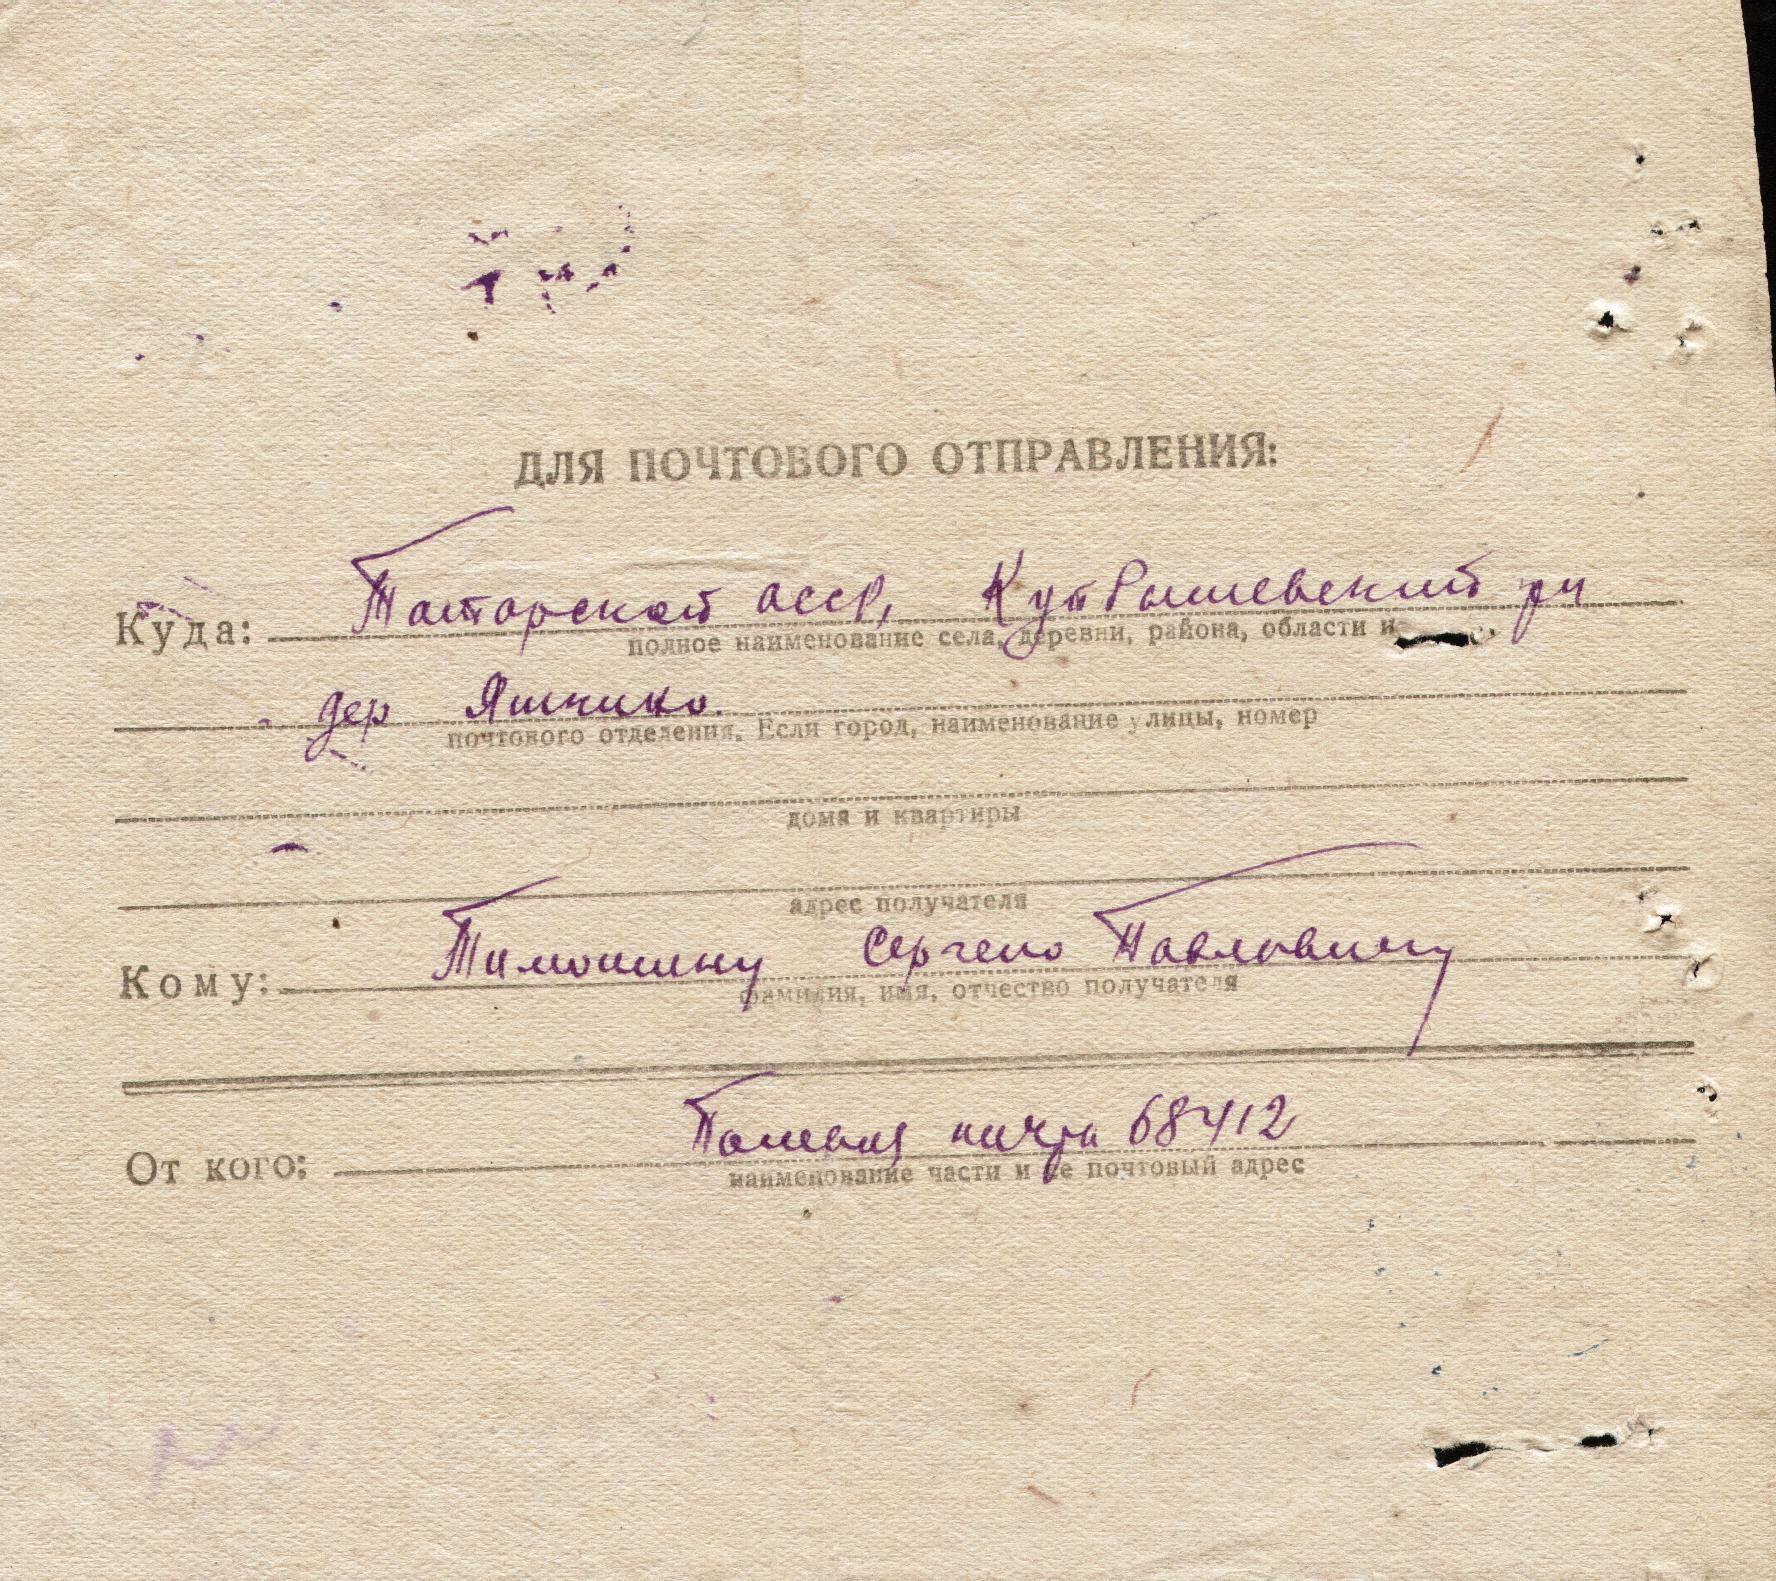 ДЛЯ ПОЧТОВОГО ОТПРАВЛЕНИЯ:
Куда: Таторской асср, Кутбышевский рн
полное наименование села, деревни, района, области и
дер Яшкино.
почтового отделения. Если город, наименование улицы, номер
дома и квартиры
адрес получателя
Кому: Тимошину Сергею Павловичу
фамилия, имя, отчество получателя
Полевая почта 68412
От кого:
наименование части и ее почтовый адрес